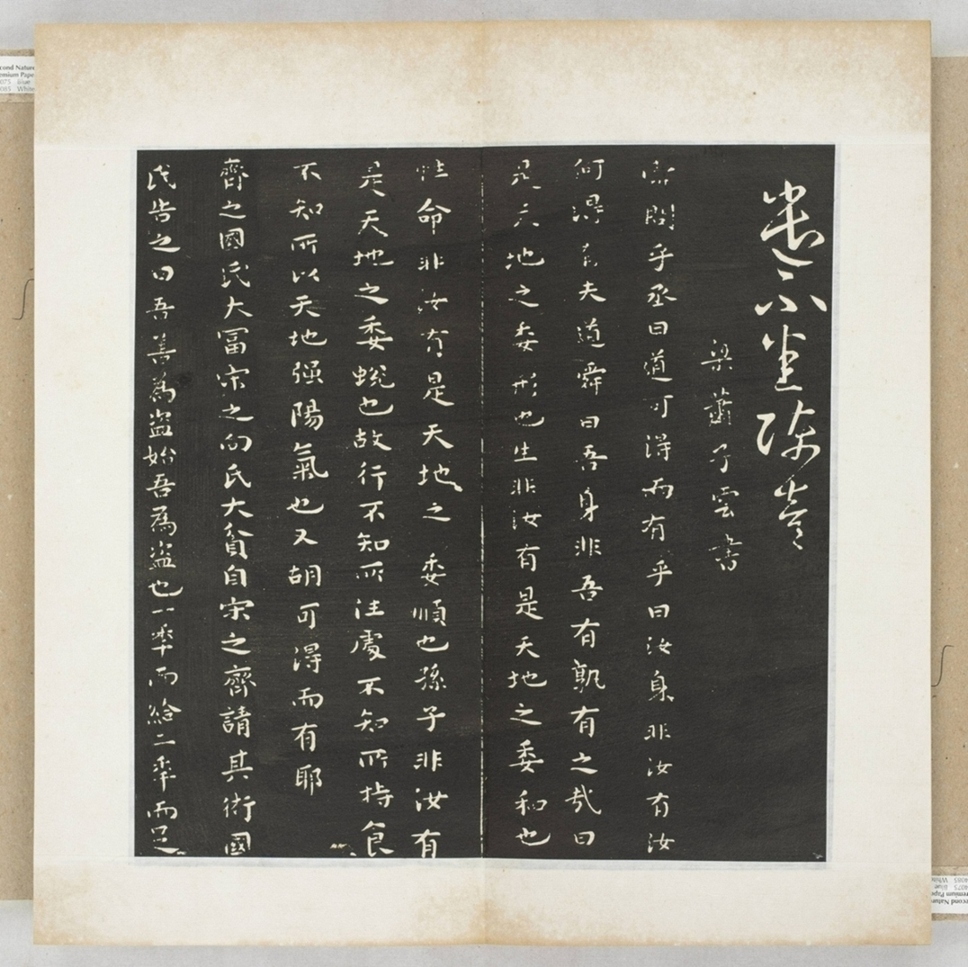 梁蕭子雲書
舜問乎丞曰道可得而有乎曰汝身非汝有汝
何得有夫道舜曰吾身非吾有孰有之哉曰
是天地之委形也生非汝有是天地之委和也
性命非汝有是天地之委順也孫子非汝有
是天地之委蛻也故行不知所往處不知所持食
不知所以天地强陽氣也又胡可得而有耶
齊之國氏大冨宋之向氏大貧自宋之齊請其術國
氏告之曰吾善為盗始吾為盗也一年而給二年而足